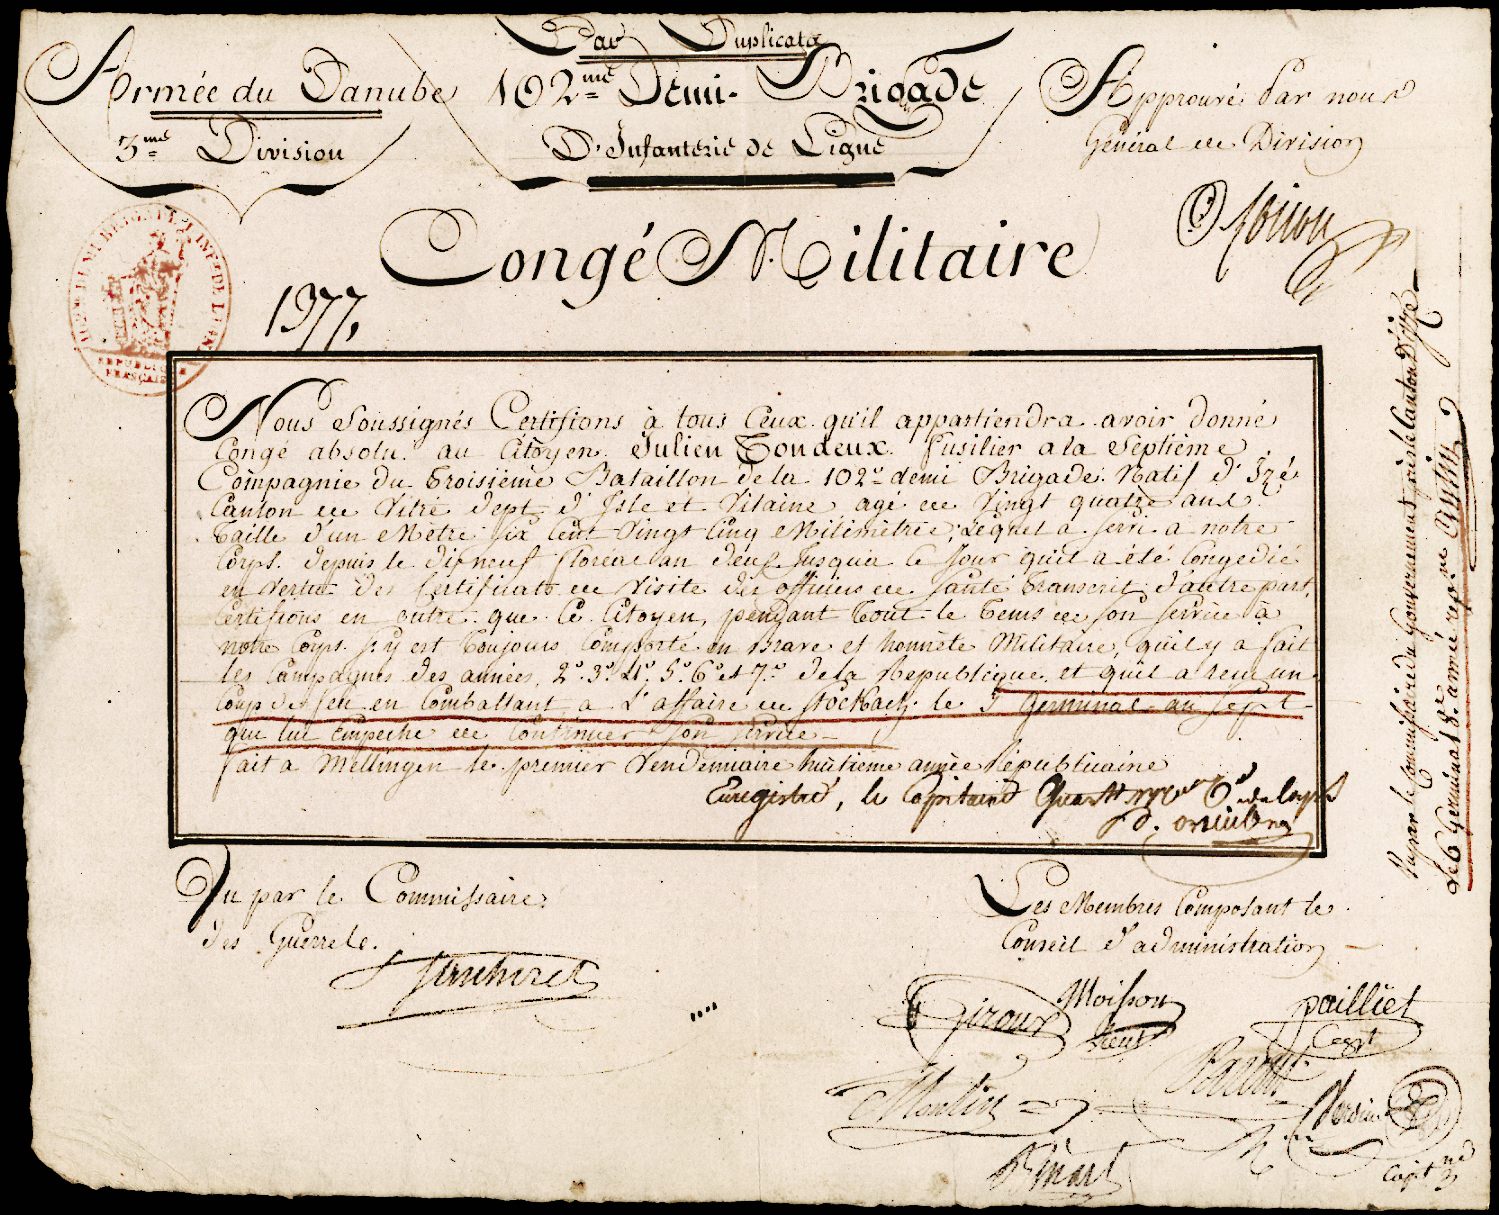 Par Duplicata
Armée du Danube
3me Division
102me Demi-Brigade
D'Infanterie de Ligne
Approuvé Par nous
Général de Division
Congé Militaire
1377,
REPUBLIQUE
FRANÇAISE
Nous Soussignés Certifions à tous Ceux qu'il appartiendra avoir donné
Congé absolu au Citoyen Julien Tondeux Fusilier a la Septième
Compagnie du Troisième Bataillon de la 102e demi Brigade Natif d'Izé
Canton de Vitré dept d'Isle et Vilaine agé de Vingt quatre ans
Taille d'un Mètre six Cent Vingt Cinq Milimètres; Lequel a servi a notre
Corps depuis le dixneuf floréal an deux Jusqua Ce Jour quil a été Congedié
en Vertu des Certificats de Visite des officiers de santé Transcrit d'autre part,
Certifions en outre que Ce Citoyen, pendant Tout le Tems de son service à
notre Corps s'y est Toujours Comporté en Brave et honnète Militaire, quil y a fait
les Campagnes des années, 2e 3e 4e 5e 6e et 7e de la Republique, et quil a reçu un
Coup de feu en Combattant a L'affaire de Stockach le 5 Germinal an Sept
que lui Empeche de Continuer son service
fait a Mellingen le premier Vendemiaire huitieme année Républicaine
Enregistré, le Capitaine Quart
Vu par le Commissaire
des Guerres
Les Membres Composant le
Conseil d'administration
Giroux
Moisson
Lieut
pailliet
Capt
Moulin
Capt
Vu par le Commissaire du Gouvernement près le Canton d'Izé
le 6 Germinal 8e année repne